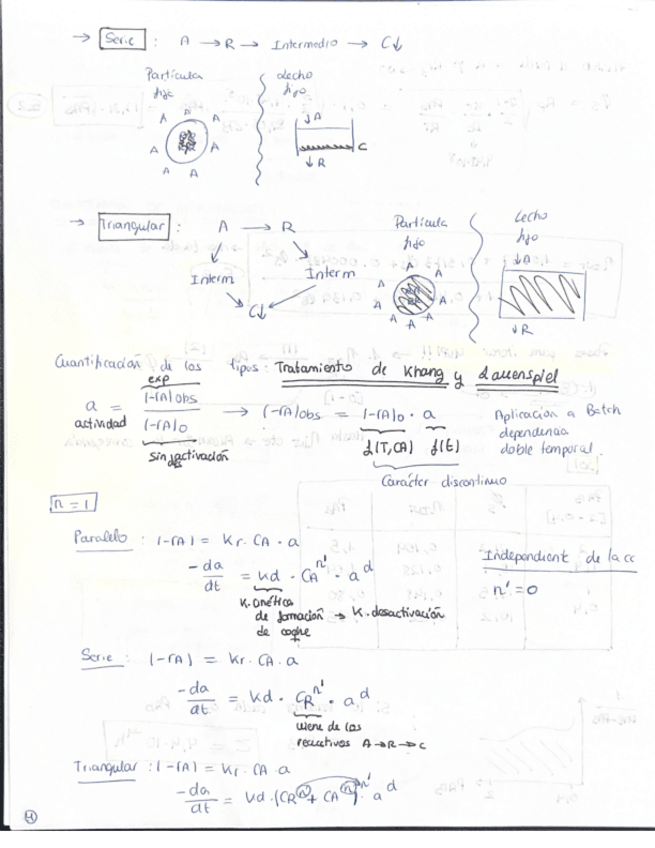 → Serie : A → R → Intermedio → C↓
Partícula fija
Lecho fijo
A A A A A A A A
↓A
C
↓R
→ Triangular : A → R
Interm Interm
C↓
Partícula fijo
Lecho fijo
A A A A A A A A
↓A
↓R
Cuantificación de los tipos: Tratamiento de Khang y Lauenspiel
exp
a = (-rA)obs / (-rA)0 → (-rA)obs = (-rA)0 · a
actividad
sin desactivación
f(T,CA) f(t)
Carácter discontinuo
Aplicación a Batch
dependencia
doble temporal.
n = 1
Paralelo : (-rA) = Kr · CA · a
-da/dt = Kd · CA^n' · a^d
K. cinética
de formación → K. desactivación
de coque
Independient de la cc
n' = 0
Serie : (-rA) = Kr · CA · a
-da/dt = Kd · CR^n' · a^d
viene de los
reactivos A→R→C
Triangular : (-rA) = Kr · CA · a
-da/dt = Kd · (CR^n + CA^n)^n' · a^d
4